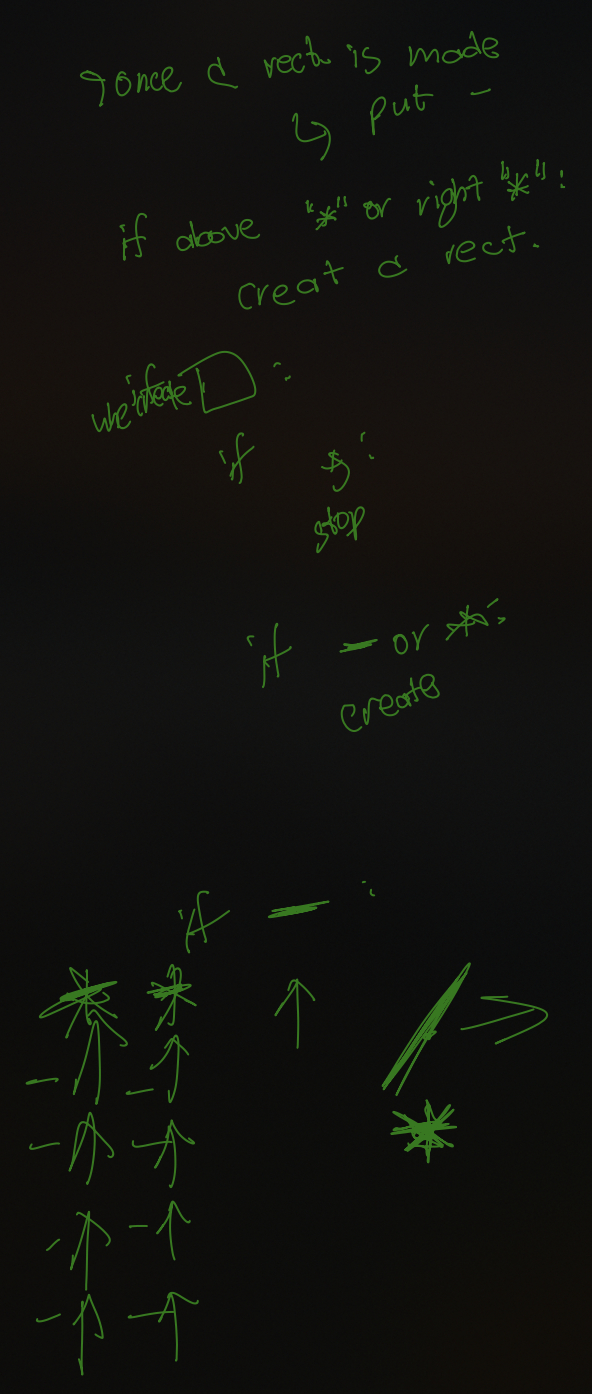 once a rect is made
↳ put -
if above "*" or right "*":
creat a rect.
:
if * :
stop
if - or * :
create
if - :
* * ↑
- ↑ - ↑
- ↑ - ↑ *
- ↑ - ↑
- ↑ - ↑